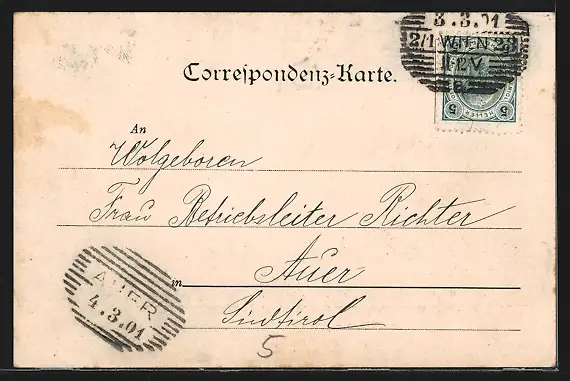 3.3.01
2/1 WIEN 2
II-12.V
5 HELLER 5
Correspondenz-Karte.
An
Wolgeboren
Frau Betriebsleiter Richter
in Auer
Südtirol
AUER
4.3.01
5